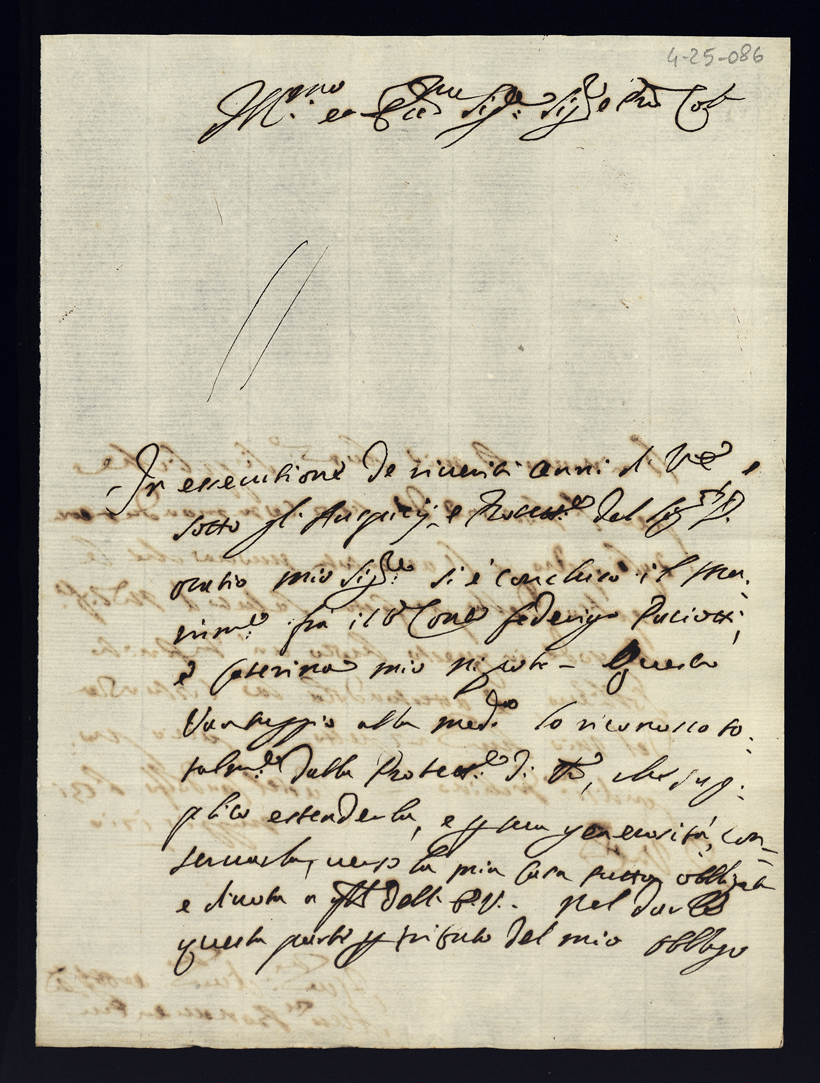 4-25-086
Ill.mo et Ecc.mo Sig.re Sig.re e Pad.
In essecutione de riveriti cenni di V.E.
sotto gli Auspicij, e del Sig.r
oratio mio Sig.re si è concluso il Ma:
trim.o frà il Conte federigo Paciotti,
e Caterina mia nipote - Questo
Vantaggio alla med.a lo riconosco to:
talm.te dalla Protet.ne di V.E., che sup:
plico estenderla, e p sua generosità, con=
servarla, verso la mia Casa tutta obbligata
e divota a dell' E.V. Nel darle
questa parte p tributo del mio obbligo